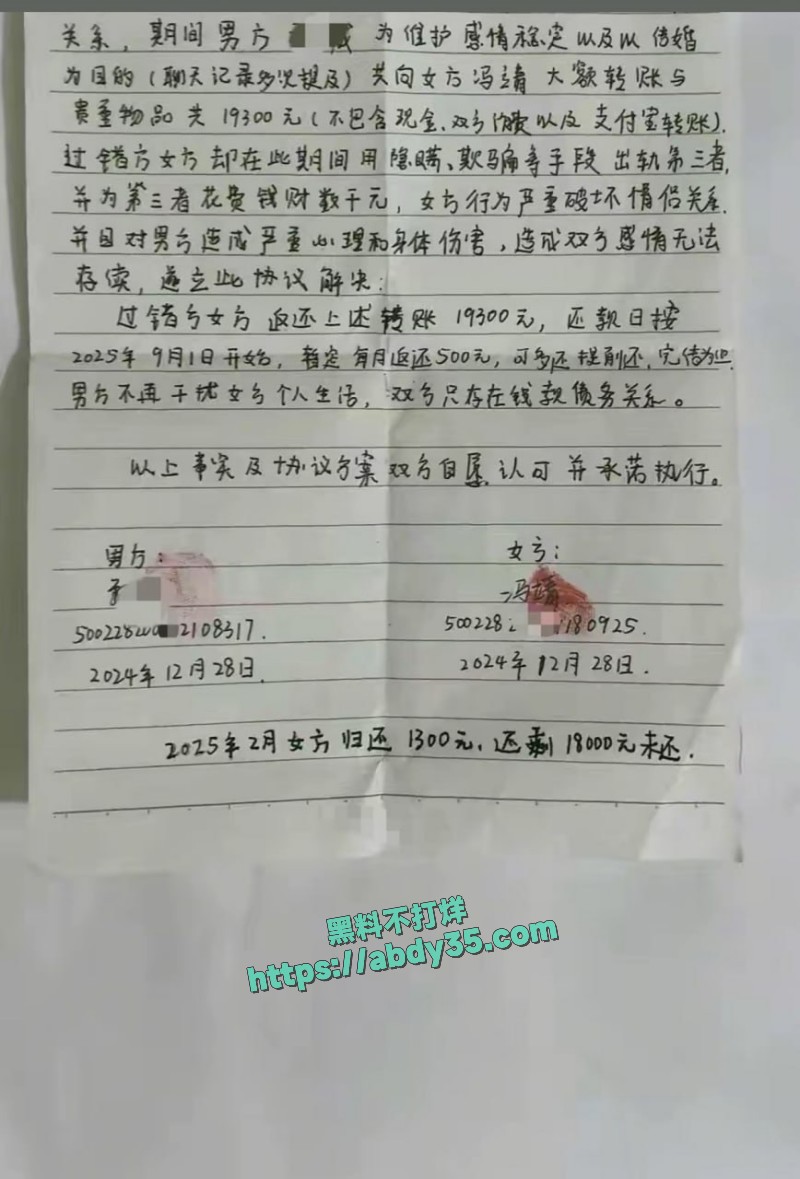 关系，期间男方 为维护感情稳定以及以结婚
为目的（聊天记录多次提及）共向女方冯靖大额转账与
贵重物品共19300元（不包含现金、双方消费以及支付宝转账）.
过错方女方却在此期间用隐瞒、欺骗等手段出轨第三者,
并为第三者花费钱财数千元，女方行为严重破坏情侣关系.
并且对男方造成严重心理和身体伤害，造成双方感情无法
存续，遂立此协议解决：
过错方女方返还上述转账19300元，还款日按
2025年9月1日开始，暂定每月返还500元，可多还提前还，完结为止.
男方不再干扰女方个人生活，双方只存在钱款债务关系。
以上事实及协议方案双方自愿认可并承诺执行。
男方：
女方：
冯靖
500228 2108317.
500228 180925.
2024年12月28日.
2024年12月28日.
2025年2月女方归还1300元，还剩18000元未还.
黑料不打烊
https://abdy35.com